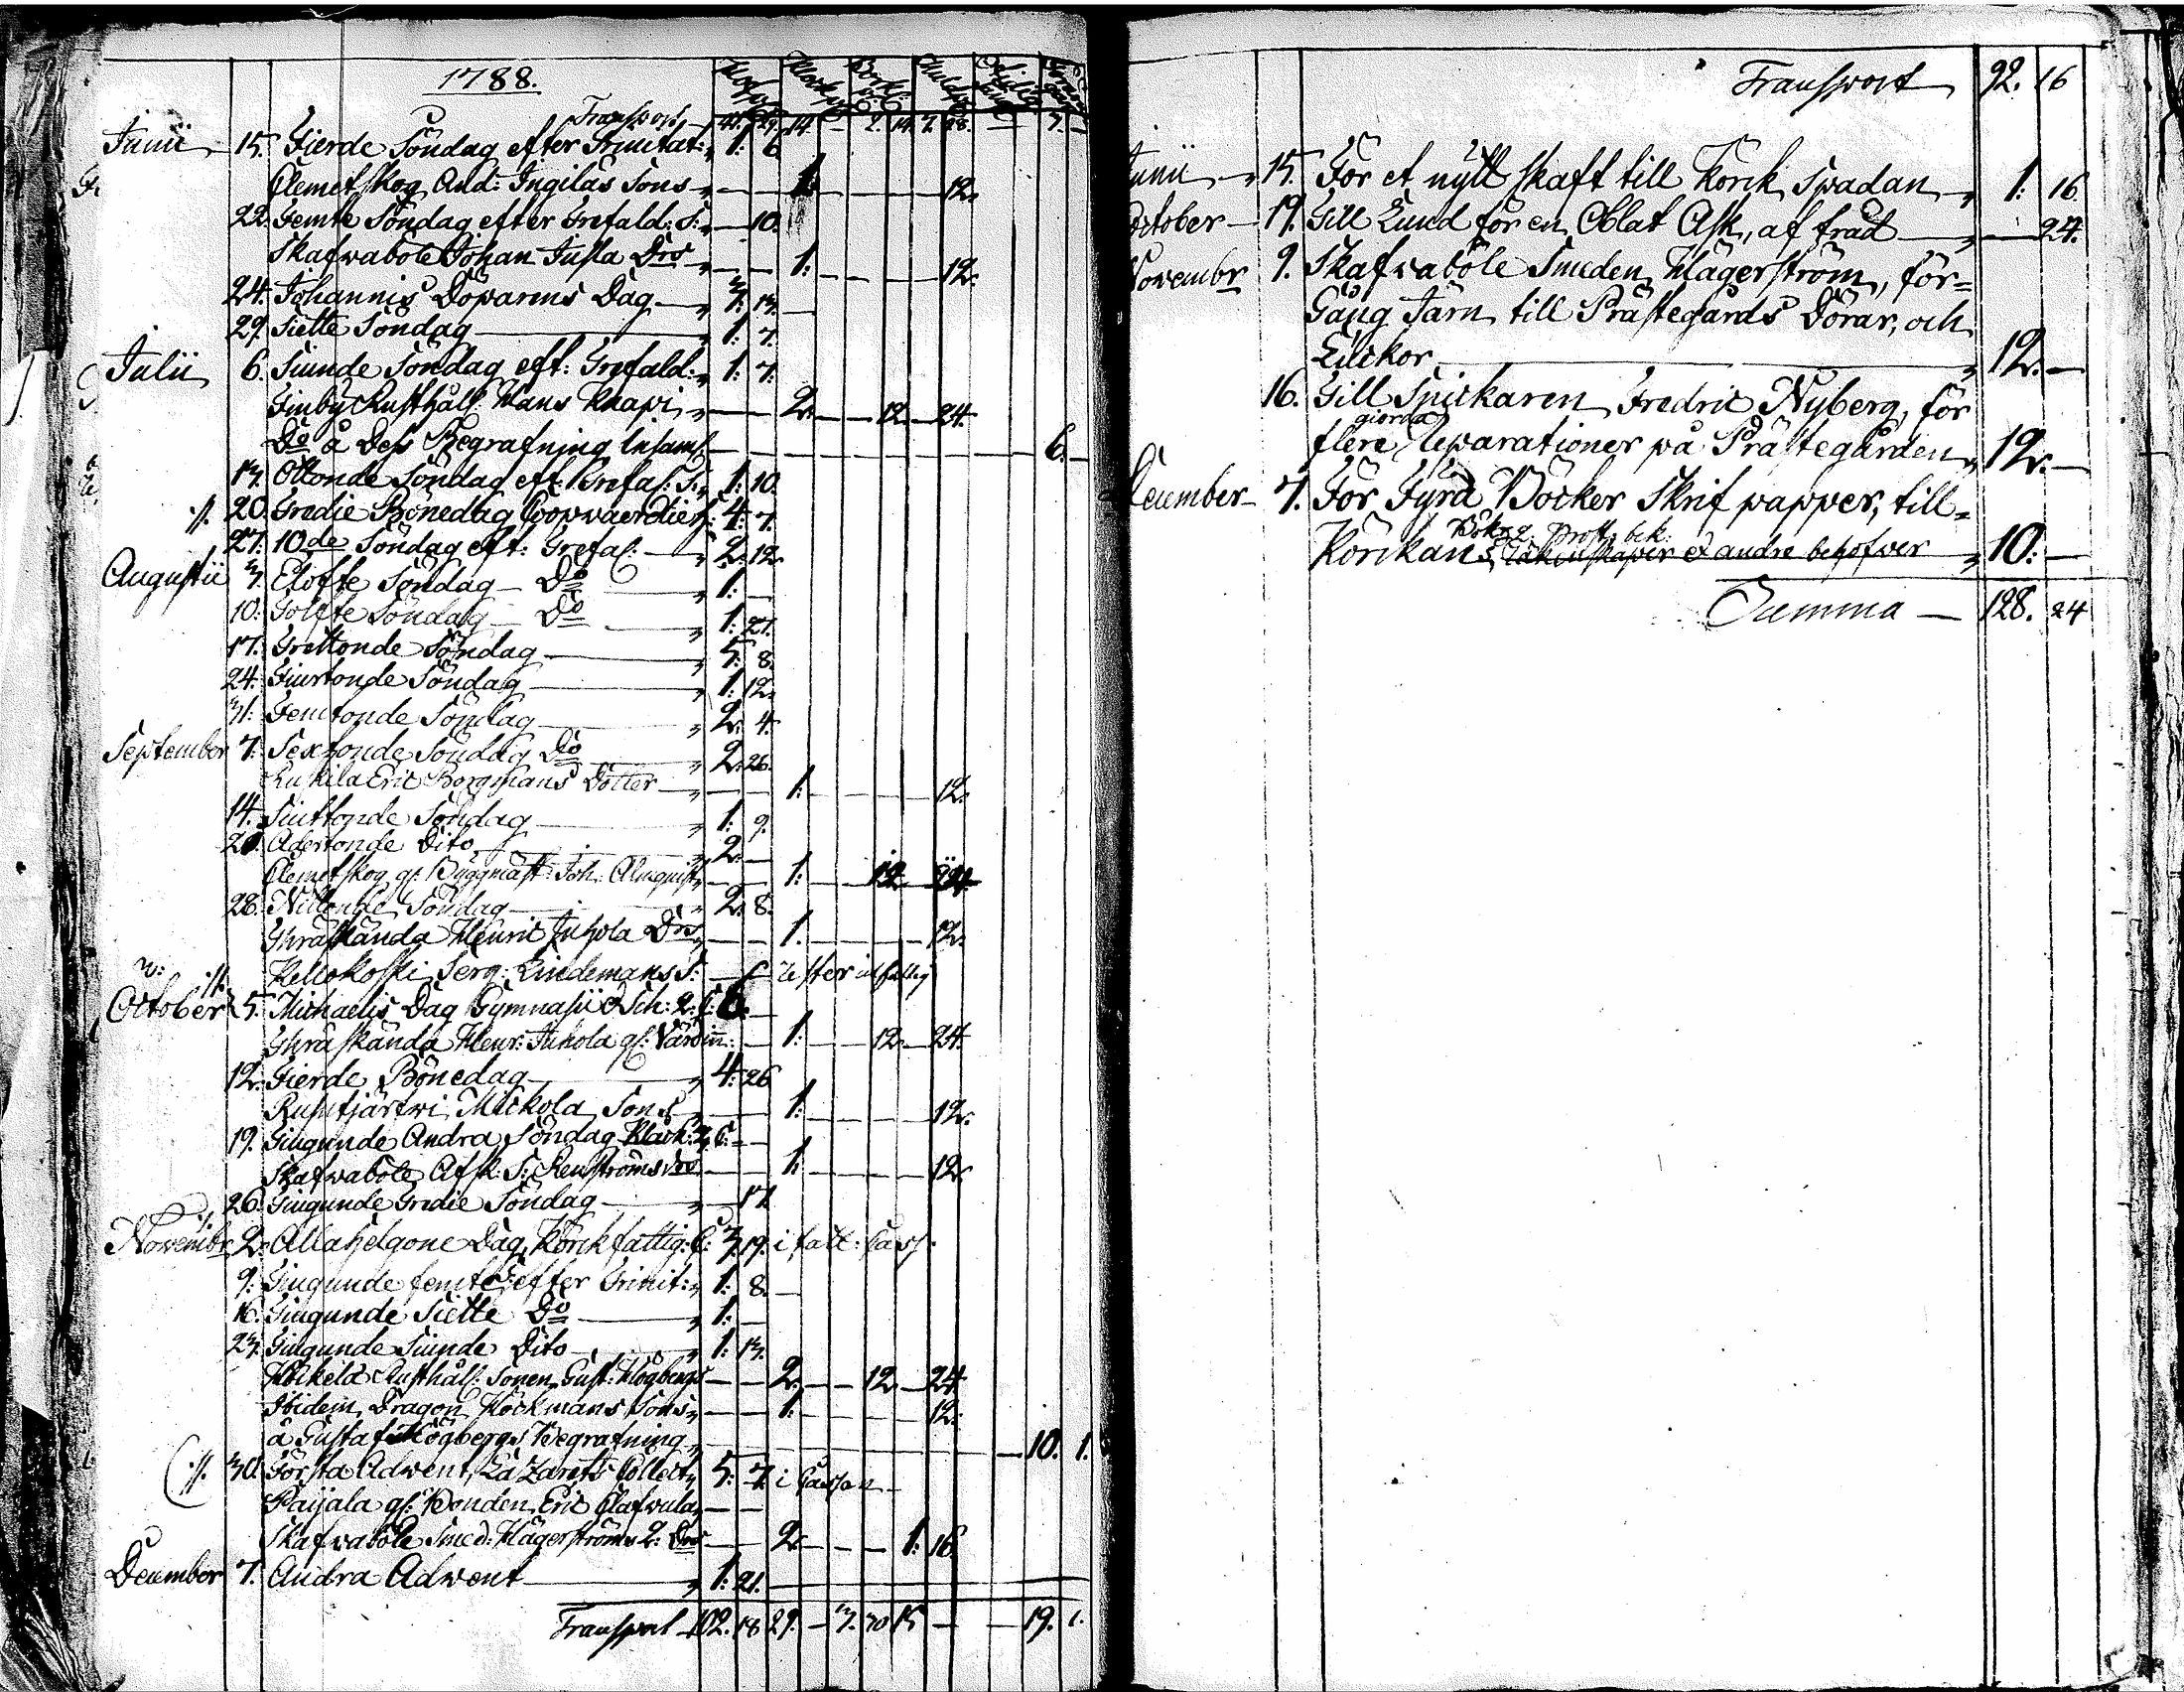 1788.
Transport 14. 2. 14. 7. 28. 7.
Junii 15. Fierde Söndag efter Trinitat: 1: 6
Clemetskog And: Ingilas Sons 1: 12.
22. Femte Söndag efter Trefald: S: 10.
Skafwaböle Johan Justa Drs 1: 12.
24. Johannis Döparens Dag 7. 13.
29. Siette Söndag 1: 7.
Julii 6. Siunde Söndag eft: Trefald: 1: 7:
Finby Rusthåll: Hans Knapi 2. 12. 24.
Do å Dess Begrafning Insaml. 6.
13. Ottonde Söndag eft: Trefal: S: 1: 10.
./. 20. Tredie Bönedag 4: 7.
27. 10de Söndag eft: Trefal: 2: 12.
Augustii 3. Elofte Söndag Do 1:
10. Tolfte Söndag Do 1: 27.
17. Trettonde Söndag 5: 8.
24. Fiurtonde Söndag 1: 12.
31. Femtonde Söndag 2. 4.
September 7. Sextonde Söndag Do 2. 26.
Ruskila Eric Borgmans Dotter 1: 12.
14. Siuttonde Söndag 1: 9.
20. Adertonde Dito 2.
Clemetskog gl: Byggmäst: Joh: Almquist 1: 12 24.
28. Nittonde Söndag 2. 8.
Thräskända Henric Juhola Drs 1. 12.
Kellokoski Serg: Lindemans S:
./. October 5. Michaelis Dag Gymnasii & Sch: 2: C: 6.
Thräskända Henr: Juhola gl: Värdin: 1: 12. 24.
12. Fierde Bönedag 4: 26
Rusutjärfwi Mickola Sons 1: 12.
19. Tiugunde Andra Söndag
Skafwaböle Afsk: S: Renströms Drs 1: 12.
26. Tiugunde Tredie Söndag 17
./. Novembr 2. Allahelgone Dag, Körckfattig: C: 7. 19. i fatt: Cass:
9. Tiugunde femte efter Trinit: 1: 8.
16. Tiugunde Siette Do 1:
23. Tiugunde Siunde Dito 1: 13.
Rusthåll: Sonen Gust: Högbergs 2. 12 24.
Ibidem, Dragon Höckmans Sons 1: 12.
å Gustaf Högbergs Begrafning 10. 1.
./. 30. Första Adwent, Lazarets Collect 5: 7. i Cassan
Paijala gl: Bonden Eric Olafwula
Skafwaböle Smed: Hägerströms 2: Drs 2. 1: 16.
December 7. Andra Adwent 1: 21.
Transport 102. 18 29. 7. 30 15 19. 1.
Transport 92. 16
Junii 15. För et nytt skaft till Körck Spadan 1: 16.
October 19. Till Lund för en Oblat Ask, af träd 24.
Novembr 9. Skafwaböle Smeden Hägerström, för=
Gång Järn till Prästegårds Dörar, och
Lückor 12.
16. Till Snickaren Fredric Nyberg, för
giorda
flere Reparationer på Prästegården 12.
December 7. För Fyra Böcker Skrif papper, till=
Böker, Prot. bok.
Körckans Räkenskaper et andre behofwer 10:
Summa 128. 24